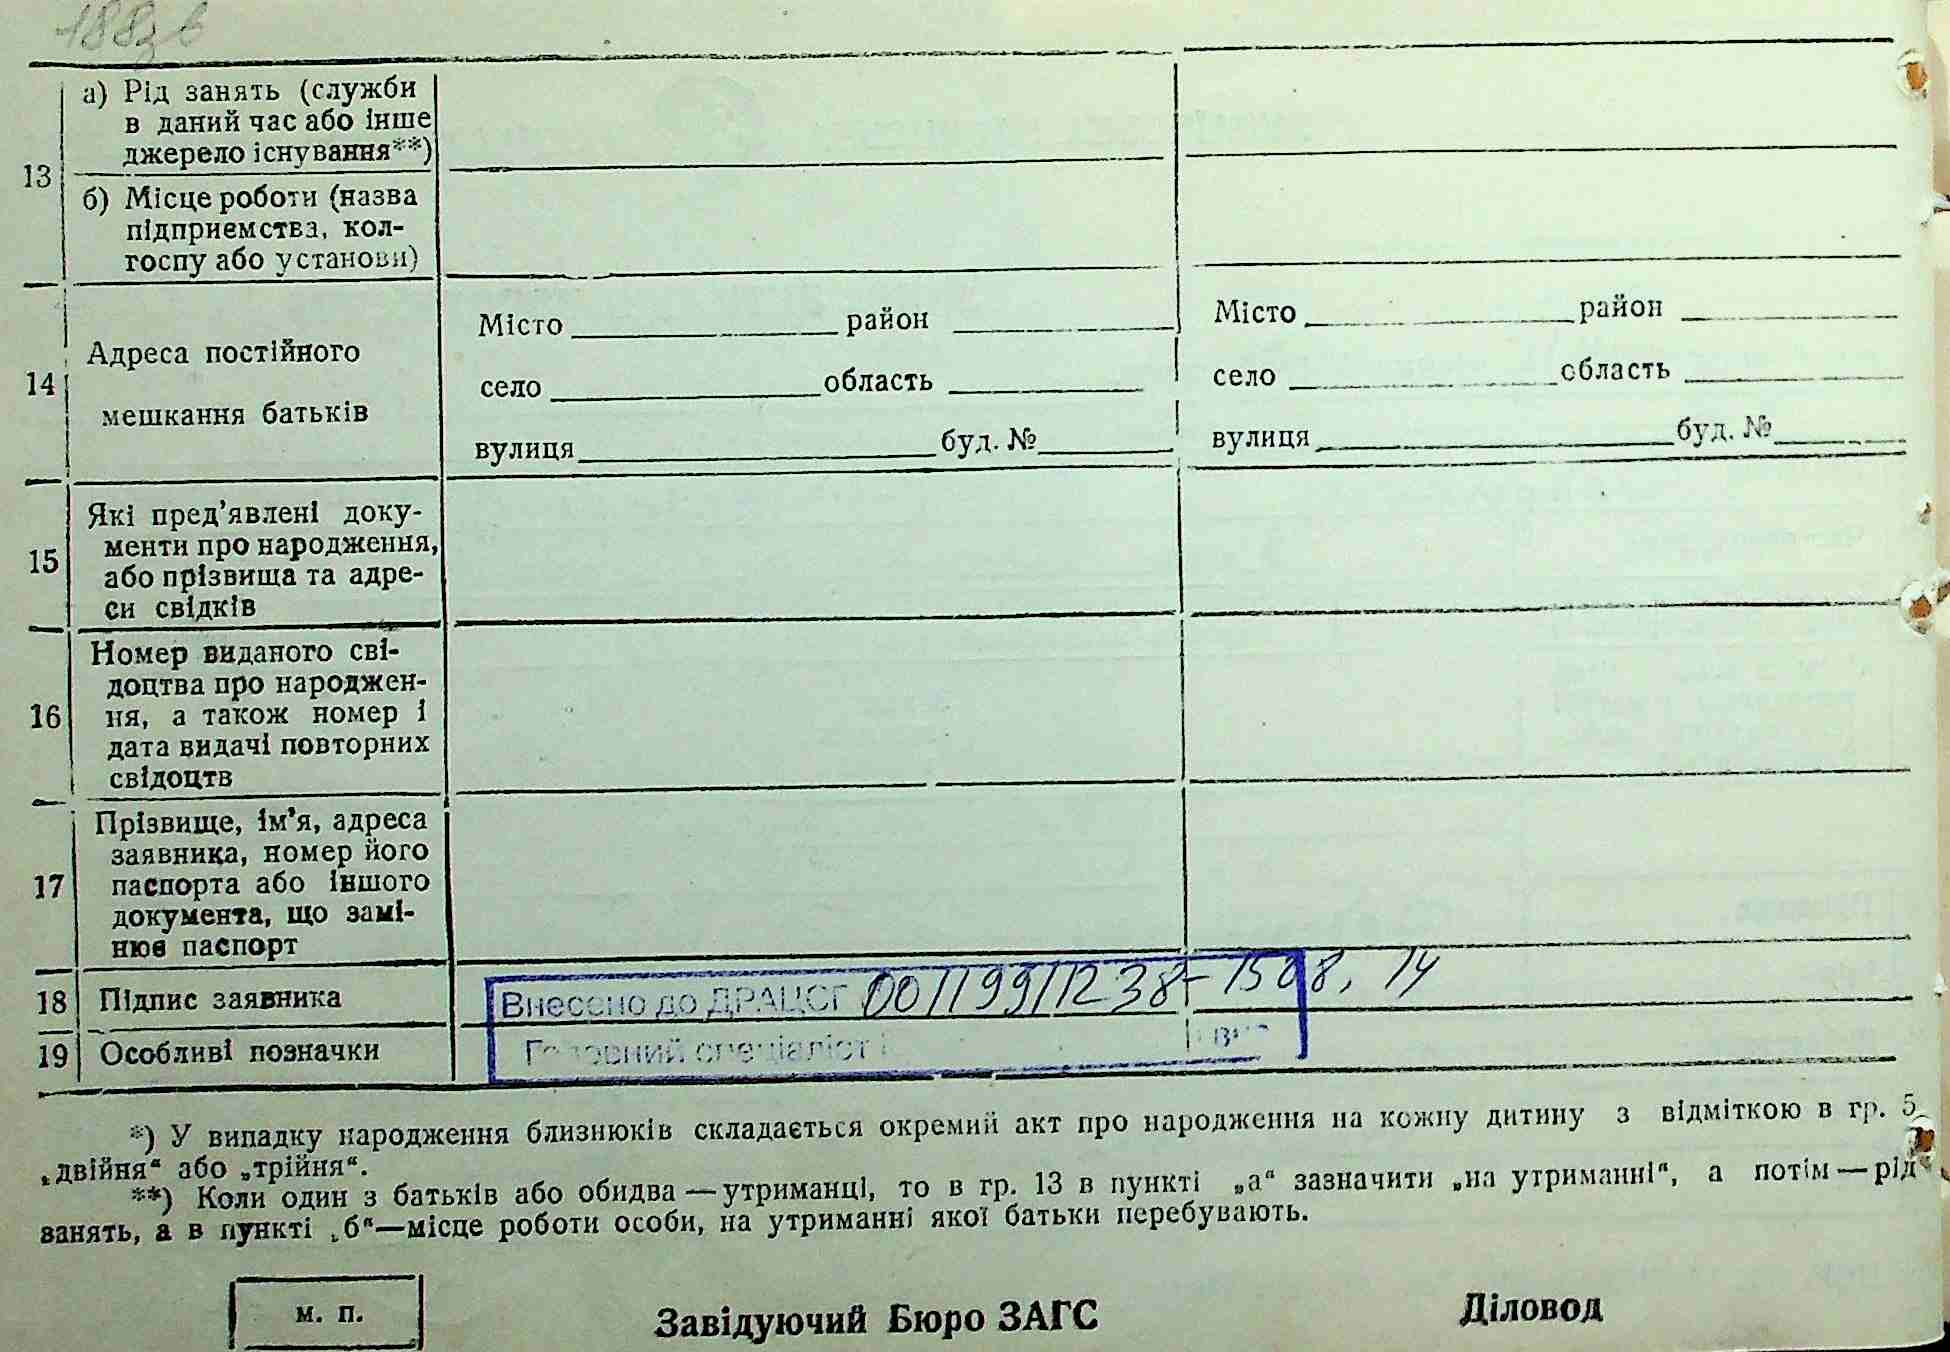 188зв
13
а) Рід занять (служби
в даний час або інше
джерело існування**)
б) Місце роботи (назва
підприємства, кол-
госпу або установи)
14
Адреса постійного
мешкання батьків
Місто район
село область
вулиця буд. №
Місто район
село область
вулиця буд. №
15
Які пред’явлені доку-
менти про народження,
або прізвища та адре-
си свідків
16
Номер виданого сві-
доцтва про народжен-
ня, а також номер і
дата видачі повторних
свідоцтв
17
Прізвище, ім’я, адреса
заявника, номер його
паспорта або іншого
документа, що замі-
нює паспорт
18 Підпис заявника
Внесено до ДРАЦСГ 00119911238-1508, 14
19 Особливі позначки
Головний спеціаліст
*) У випадку народження близнюків складається окремий акт про народження на кожну дитину з відміткою в гр. 5
„двійня“ або „трійня“.
**) Коли один з батьків або обидва — утриманці, то в гр. 13 в пункті „а“ зазначити „на утриманні“, а потім — рід
занять, а в пункті „б“—місце роботи особи, на утриманні якої батьки перебувають.
м. п.
Завідуючий Бюро ЗАГС
Діловод